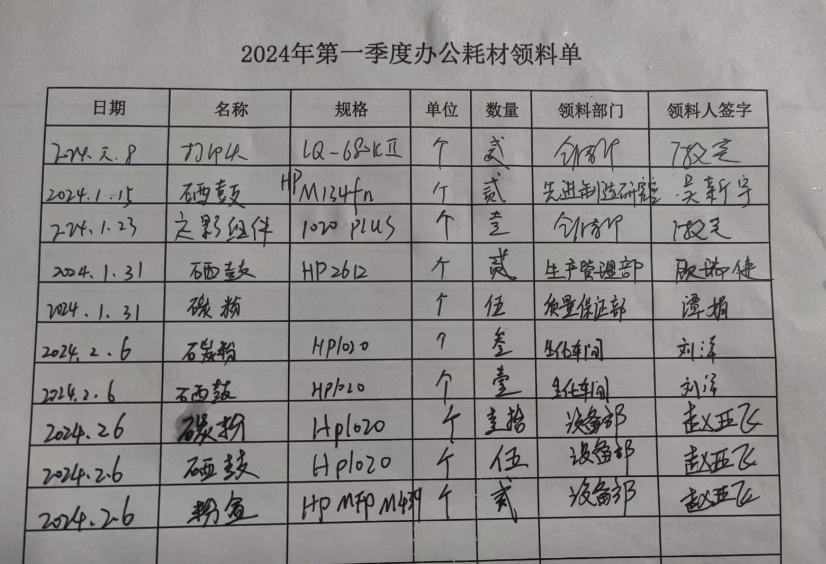 2024年第一季度办公耗材领料单
日期 名称 规格 单位 数量 领料部门 领料人签字
2024.元.8 打印头 LQ-680KII 个 贰
2024.1.15 硒鼓 HP M134fn 个 贰 先进制造研究室 吴新宇
2024.1.23 定影组件 1020 PLUS 个 壹
2024.1.31 硒鼓 HP2612 个 贰 生产管理部
2024.1.31 碳粉 个 伍 质量保证部 谭娟
2024.2.6 石炭粉 HP1020 个 叁 生化车间 刘洋
2024.2.6 硒鼓 HP1020 个 壹 生化车间 刘洋
2024.2.6 碳粉 Hp1020 个 壹拾 设备部 赵亚飞
2024.2.6 硒鼓 Hp1020 个 伍 设备部 赵亚飞
2024.2.6 粉盒 HP MFP M439 个 贰 设备部 赵亚飞